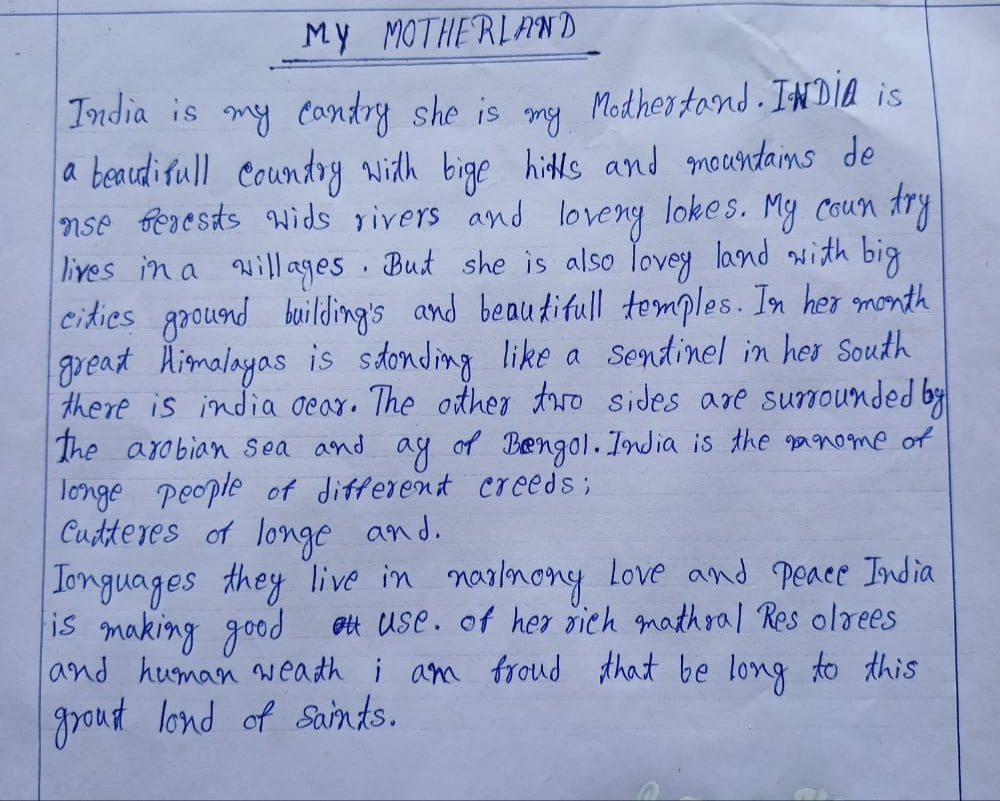 MY MOTHERLAND
India is my cantry she is my Mothertand. INDIA is
a beautifull country with bige hills and mountains de
nse ferests wids rivers and loveny lokes. My coun try
lives in a willages. But she is also lovey land with big
cities ground building's and beautifull temples. In her month
great Himalayas is stonding like a sentinel in her South
there is india oear. The other two sides are surrounded by
the arobian sea and ay of Bengol. India is the nome of
longe people of different creeds;
Cutteres of longe and.
Ionguages they live in narlnony Love and peace India
is making good use. of her rich mathral Res olrees
and human weath i am froud that be long to this
grout lond of saints.